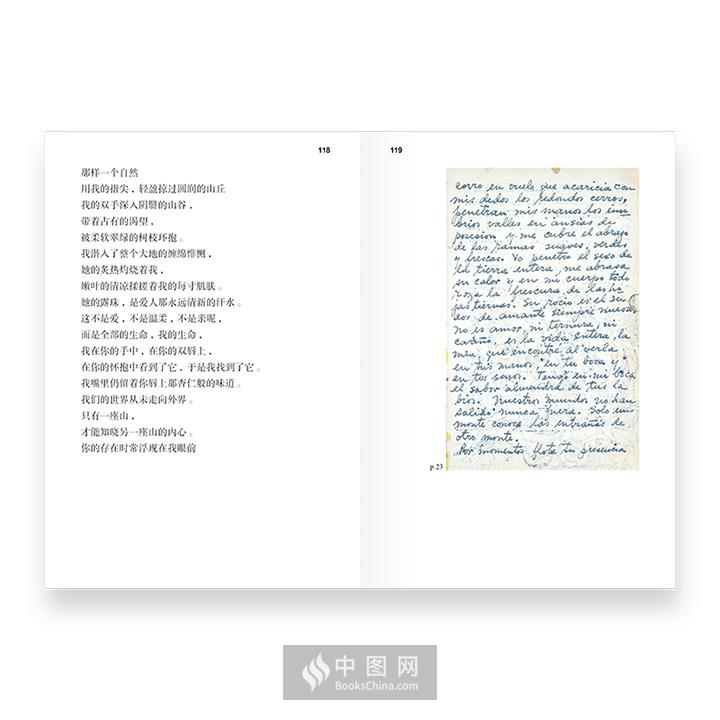 118
那样一个自然
用我的指尖，轻盈掠过圆润的山丘
我的双手深入阴翳的山谷，
带着占有的渴望，
被柔软翠绿的树枝环抱。
我潜入了整个大地的缠绵悱恻，
她的炙热灼烧着我，
嫩叶的清凉揉搓着我的每寸肌肤。
她的露珠，是爱人那永远清新的汗水。
这不是爱，不是温柔，不是亲昵，
而是全部的生命，我的生命，
我在你的手中，在你的双唇上，
在你的怀抱中看到了它，于是我找到了它。
我嘴里仍留着你唇上那杏仁般的味道。
我们的世界从未走向外界。
只有一座山，
才能知晓另一座山的内心。
你的存在时常浮现在我眼前
119
cerro en vuelo que acaricia con
mis dedos los redondos cerros,
penetran mis manos los um
brios valles en ansias de
posesion y me cubre el abrazo
de las ramas suaves, verdes
y frescas. Yo penetro el sexo de
la tierra entera, me abrasa
su calor y en mi cuerpo todo
roza la frescura de las ho
jas tiernas. Su rocío es el su
dor de amante siempre nuevo
no es amor, ni ternura, ni
cariño, es la vida entera, la
mía, que encontre al verla
en tus manos, en tu boca y
en tus senos. Tengo en mi boca
el sabor almendra de tus la
bios. Nuestros mundos no han
salido nunca fuera. Solo un
monte conoce las entrañas de
otro monte.
Por momentos flota tu presencia
p.23
中图网
BooksChina.com